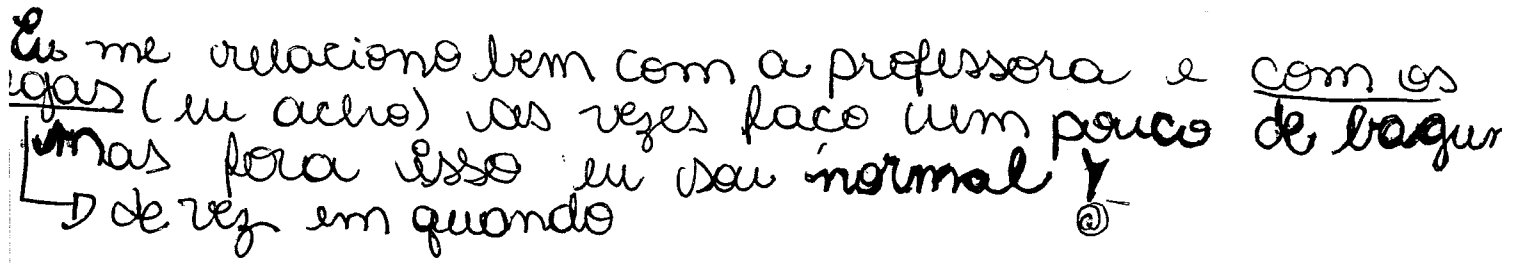 Eu me relaciono bem com a professora e com os
egas (eu acho) as vezes faço um pouco de bagun
mas fora isso eu sou normal!
de vez em quando